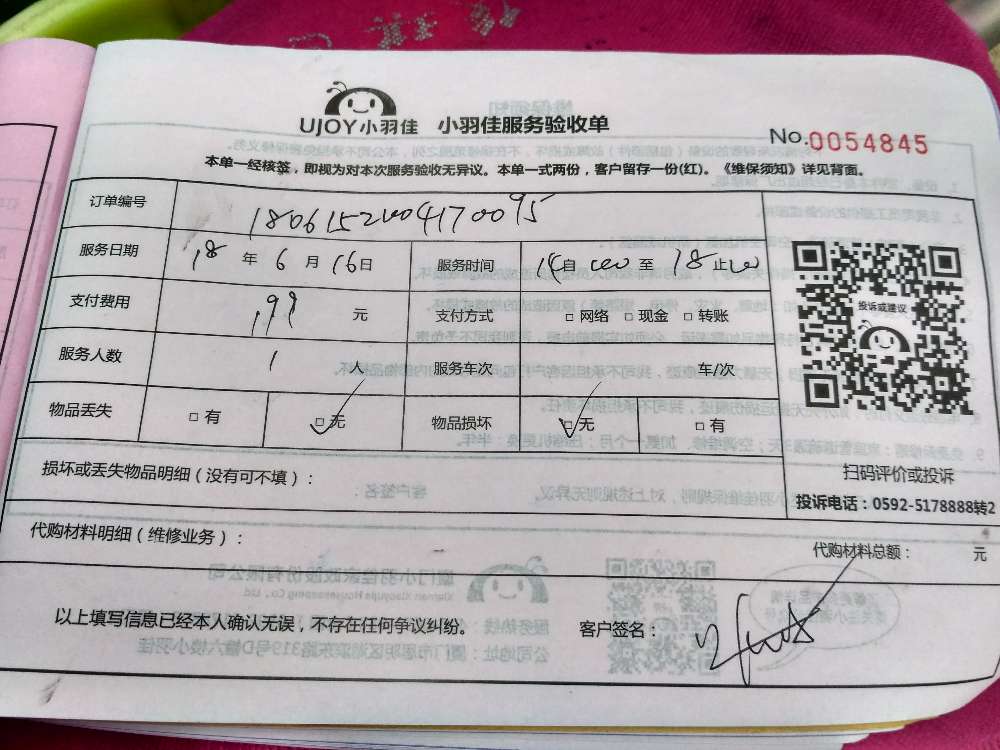 UJOY小羽佳 小羽佳服务验收单
No.0054845
本单一经核签，即视为对本次服务验收无异议。本单一式两份，客户留存一份(红)。《维保须知》详见背面。
订单编号 1806152004170095
服务日期 18年6月16日 服务时间 14自00至18止00
支付费用 99元 支付方式 □网络 □现金 □转账
投诉或建议
服务人数 1人 服务车次 车/次
物品丢失 □有 □无 物品损坏 □无 □有
扫码评价或投诉
损坏或丢失物品明细（没有可不填）：
投诉电话：0592-5178888转2
代购材料明细（维修业务）：
代购材料总额： 元
以上填写信息已经本人确认无误，不存在任何争议纠纷。 客户签名：